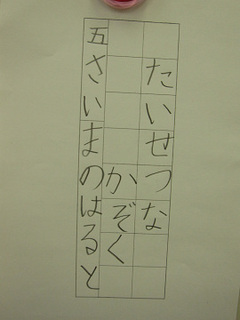 たいせつな
かぞく
五さいまのはると